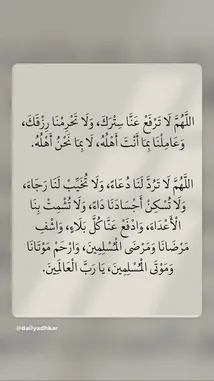 اللَّهُمَّ لَا تَرْفَعْ عَنَّا سِتْرَكَ، وَلَا تَحْرِمْنَا رِزْقَكَ،
وَعَامِلْنَا بِمَا أَنْتَ أَهْلُهُ، لَا بِمَا نَحْنُ أَهْلُهُ.
اللَّهُمَّ لَا تَرُدَّ لَنَا دُعَاءً، وَلَا تُخَيِّبْ لَنَا رَجَاءً،
وَلَا تُسْكِنْ أَجْسَادَنَا دَاءً، وَلَا تُشْمِتْ بِنَا
الْأَعْدَاءَ، وَادْفَعْ عَنَّا كُلَّ بَلَاءٍ، وَاشْفِ
مَرْضَانَا وَمَرْضَى الْمُسْلِمِينَ، وَارْحَمْ مَوْتَانَا
وَمَوْتَى الْمُسْلِمِينَ، يَا رَبَّ الْعَالَمِينَ.
@dailyadhkar